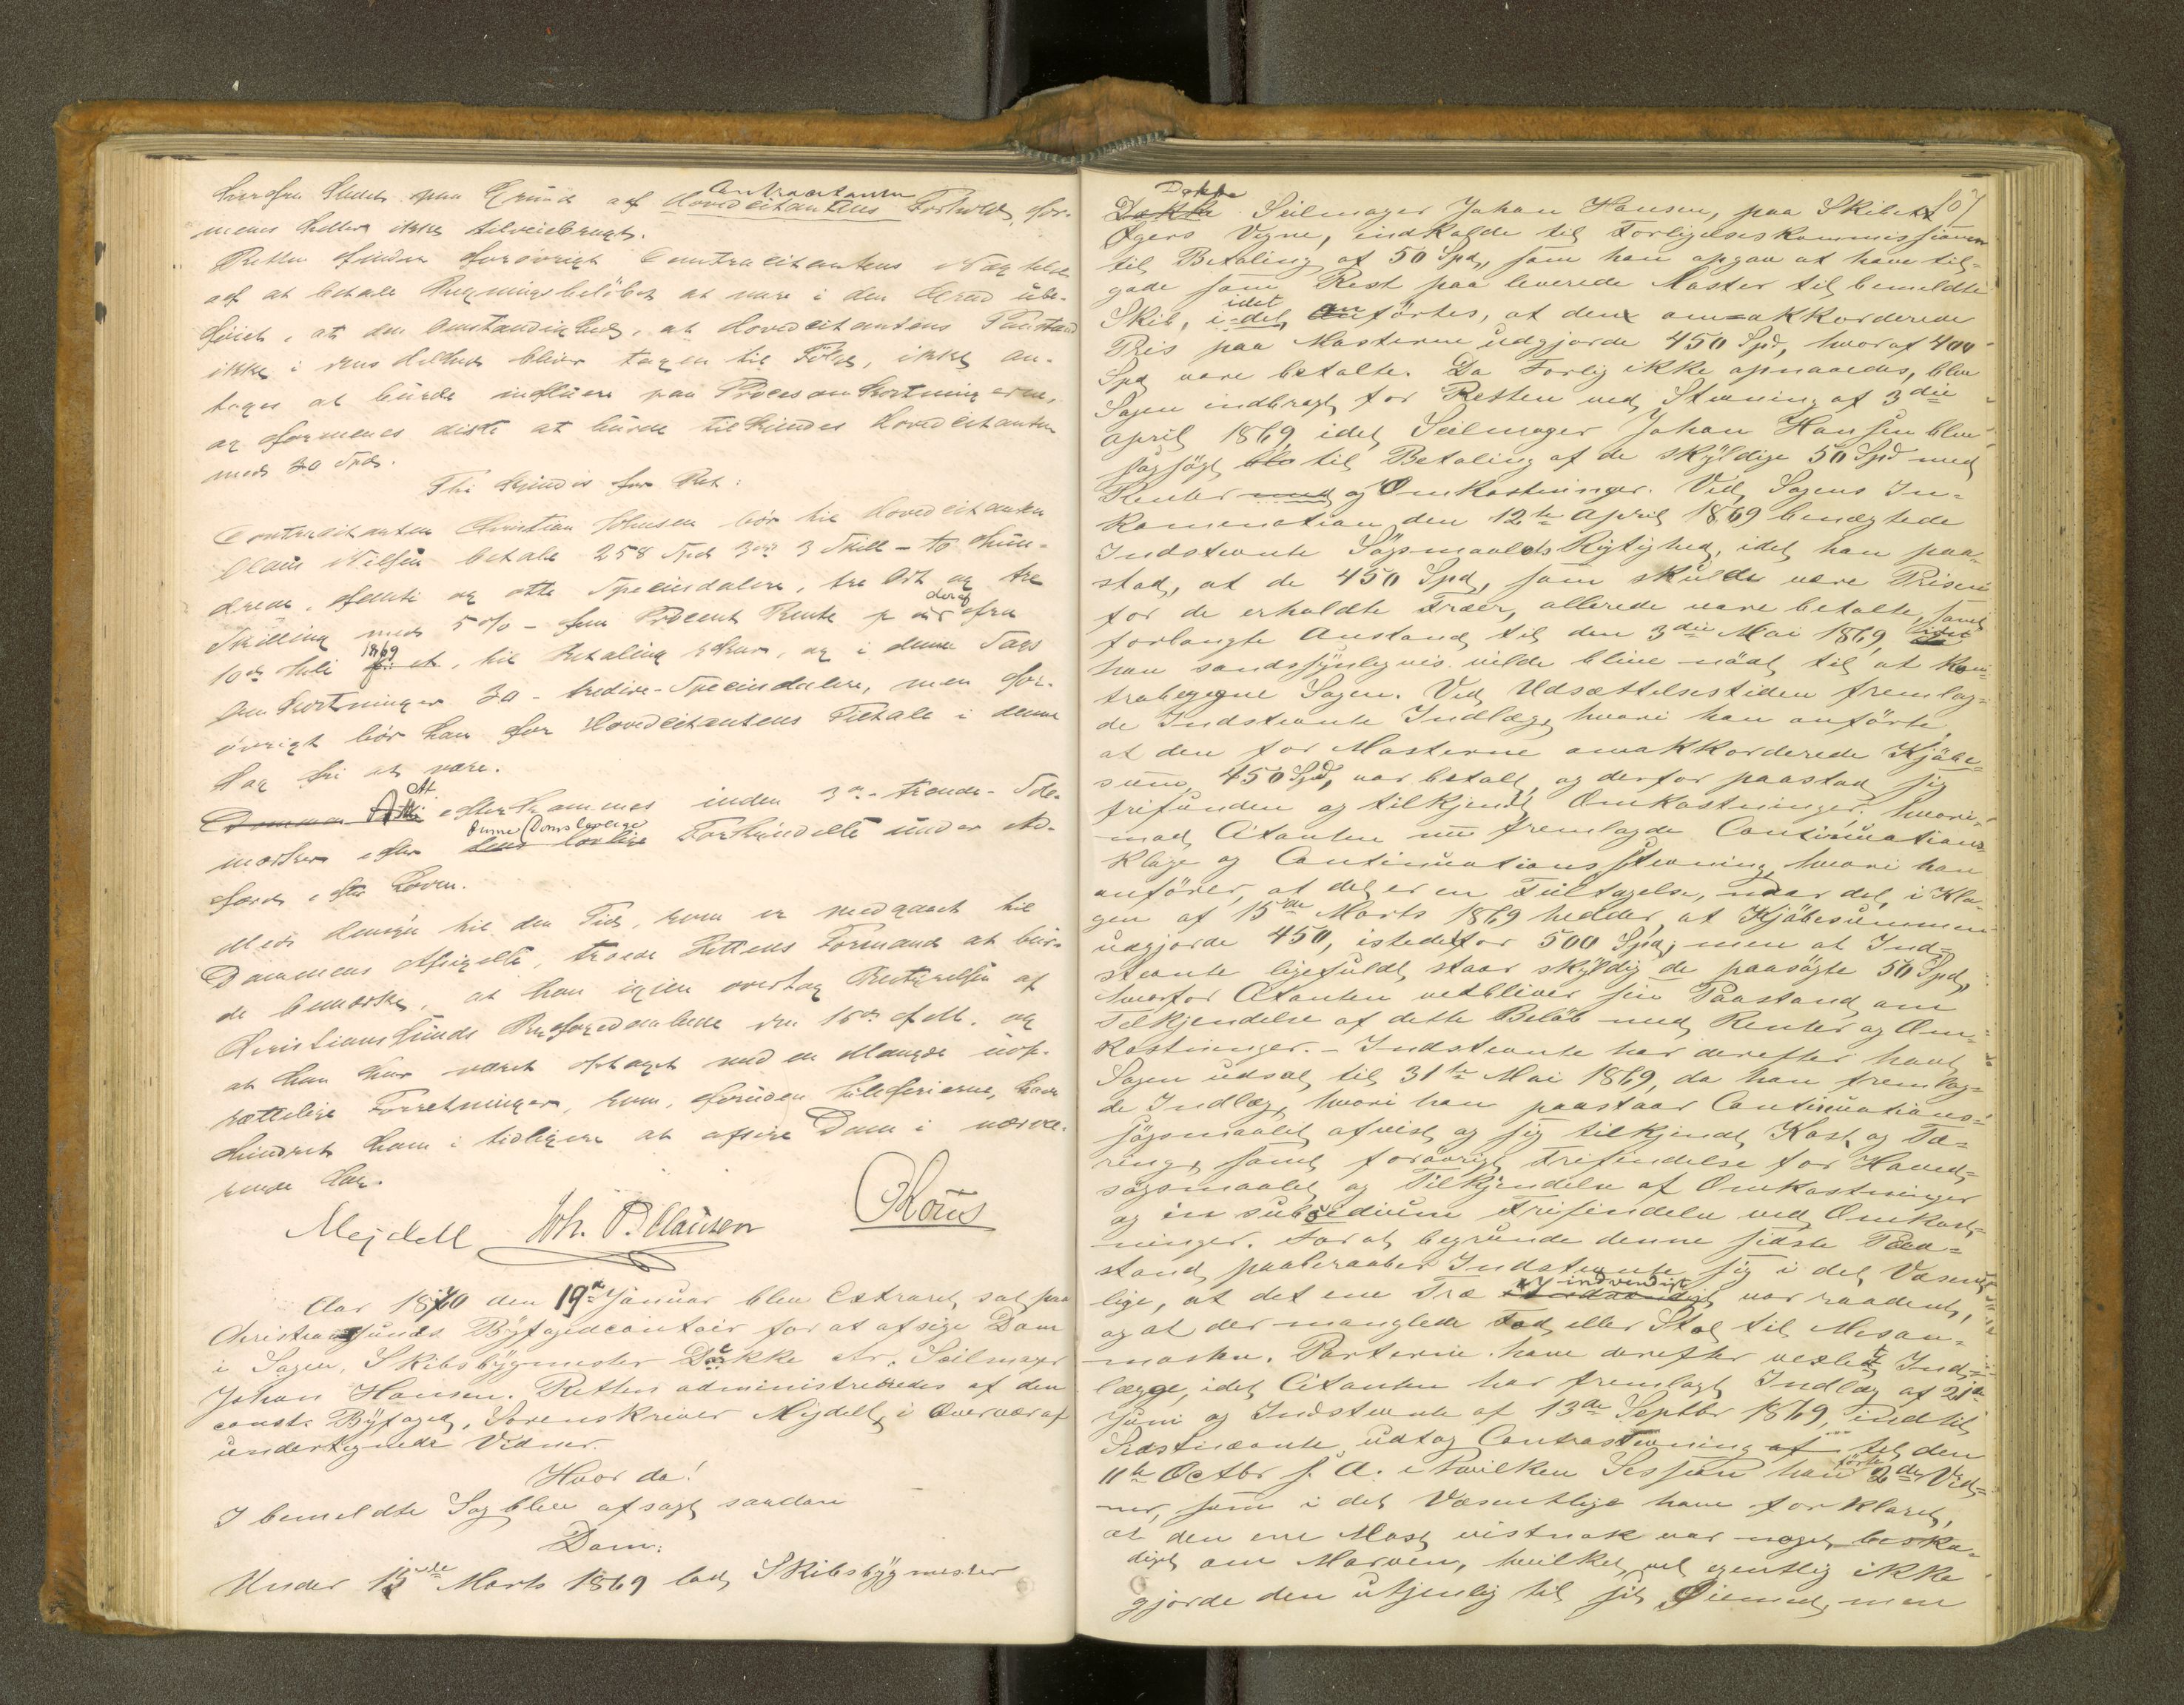 hverfra Stedet paa Grund af Hovedcitantens Contracitantens Forhold, for-
menes heller ikke tilveiebragt.
Retten finder forövrigt Contracitantens Vægtelse
af at betale Regningsbelöbet at være i den Grad ube-
föiet, at den Omstændighed, at Hovedcitantens Paastand
ikke i dens Helhed bliver tagen til Fölge, ikke an-
tages at burde influere paa Procesomkostningerne,
og formenes disse at burde tilkjendes Hovedcitanten
med 30 Spd.
Thi kjendes for Ret:
Contracitanten Christian Johnsen bör til Hovedcitanten
Claus Nilsen betale 258 Spd 3 ort 3 Skill - to Hun-
drede, femti og otte Speciedalere, tre Ort og tre
Skilling med 5 % - fem Procent Rente deraf p aar fra
10de Juli 1869 til Betaling skeer, og i denne Sags
Omkostninger 30 - tredive - Speciedalere, men for-
övrigt bör han for Hovedcitantens Tiltale i denne
Sag fri at være.
At efterkommes inden 3de - trende - Sole-
mærker efter denne Doms lovlige Forkyndelse under Ad-
færd efter Loven.
Med Hensyn til den Tid, som er medgaaet til
Dommens Afsigelse, troede Rettens Formand at bur-
de bemærke, at han igjen overtog Bestyrelsen af
Christianssunds Byfogedembede den 15de f. M. og
at han har været optaget med en Mængde uop-
sættelige Forretninger, som, foruden Juleferierne, have
hindret ham i tidligere at afsige Dom i nærvæ-
rende Sag.
Mejdell Joh. P. Clausen
Aar 1870 den 19de Januar blev Extraret sat paa
Christianssunds Byfogedcontoir for at afsige Dom
i Sagen, Skibsbygmester Dokke ctr. Seilmager
Johan Hansen. Retten administreredes af den
const. Byfoged, Sorenskriver Mejdell, i Overvær af
undertegnede Vidner.
Hvor da!
I bemeldte Sag blev afsagt saadan
Dom:
Under 15de Marts 1869 lod Skibsbygmester
107
Dokke Seilmager Johan Hansen, paa Skibets
Eiers Vegne, indkalde til Forligelseskommissionen
til Betaling af 50 Spd, som han opgav at have til-
gode som Rest paa leverede Master til bemeldte
Skib, idet anförtes, at den omakkorderede
Pris paa Masterne udgjorde 450 Spd, hvoraf 400
Spd vare betalte. Da Forlig ikke opnaaedes, blev
Sagen indbragt for Retten ved Stevning af 3die
April 1869, idet Seilmager Johan Hansen blev
sagsögt til Betaling af de skyldige 50 Spd med
Renter og Omkostninger. Ved Sagens In-
kamination den 12te April 1869 benægtede
Indstevnte Sögsmaalets Rigtighed, idet han paa-
stod, at de 450 Spd, som skulde være Prisen
for de erholdte Træer, allerede vare betalte, samt
forlangte Anstand til den 3die Mai 1869, idet
han sandsynligvis vilde blive nödt til at kon-
trabegegne Sagen. Ved Udsættelsestiden fremlag-
de Indstevnte Indlæg, hvori han anförte,
at den for Masterne omakkorderede Kjöbe-
sum, 450 Spd, var betalt, og derfor paastod sig
frifunden og tilkjendt Omkostninger, hvori-
mod Citanten nu fremlagde Continuations-
klage og Continuationsstevning, hvori han
anförer, at det er en Feiltagelse, naar det i Kla-
gen af 15de Marts 1869 hedder, at Kjöbesummen
udgjorde 450, istedetfor 500 Spd, men at Ind-
stevnte ligefuldt staar skyldig de paasögte 50 Spd,
hvorfor Citanten vedbliver sin Paastand om
Tilkjendelse af dette Belöb med Renter og Om-
kostninger. - Indstevnte har derefter havt
Sagen udsat til 31te Mai 1869, da han fremlag-
de Indlæg, hvori han paastaar Continuations-
sögsmaalet afvist og sig tilkjendt Kost og Tæ-
ring, samt forövrigt Frifindelse for Hoved-
sögsmaalet og Tilkjendelse af Omkostninger
og in subsidium Frifindelse ved Omkost-
ninger. For at begrunde denne sidste Paa-
stand paaberaaber Indstevnte sig i det Væsent-
lige, at det ene Træ indvendigt var raadent,
og at der manglede Fod eller Stol til Mesan-
masten. Parterne have derefter vexlet Ind-
lægge, idet Citanten har fremlagt Indlæg af 21de
Juni og Indstevnte af 13de Septbr 1869, indtil
Indstevnte udtog Contrastevning til den
11te Octbr s. A. i hvilken Session han förte 2de Vid-
ner, som i det Væsentlige have forklaret,
at den ene Mast vistnok var noget beska-
diget om Marven, hvilket vel egentlig ikke
gjorde den utjenlig til sit Öiemed, men